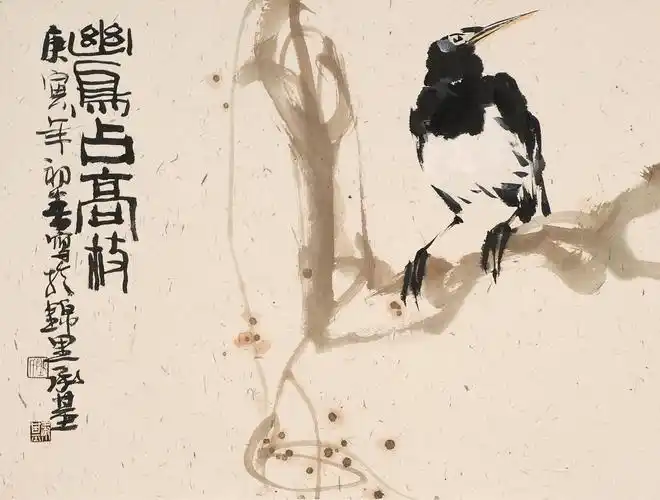 幽鳥占高枝
庚寅年初春寫於錦里